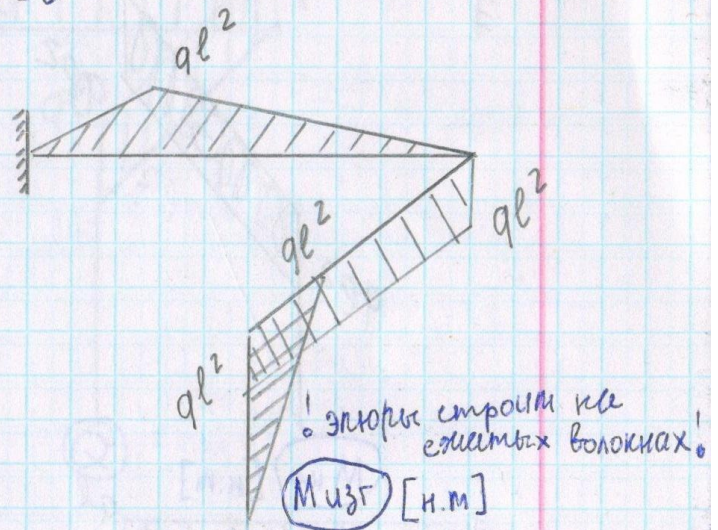 ql²
ql²
ql²
ql²
! эпюры строим на
сжатых волокнах!
Мизг [н.м]